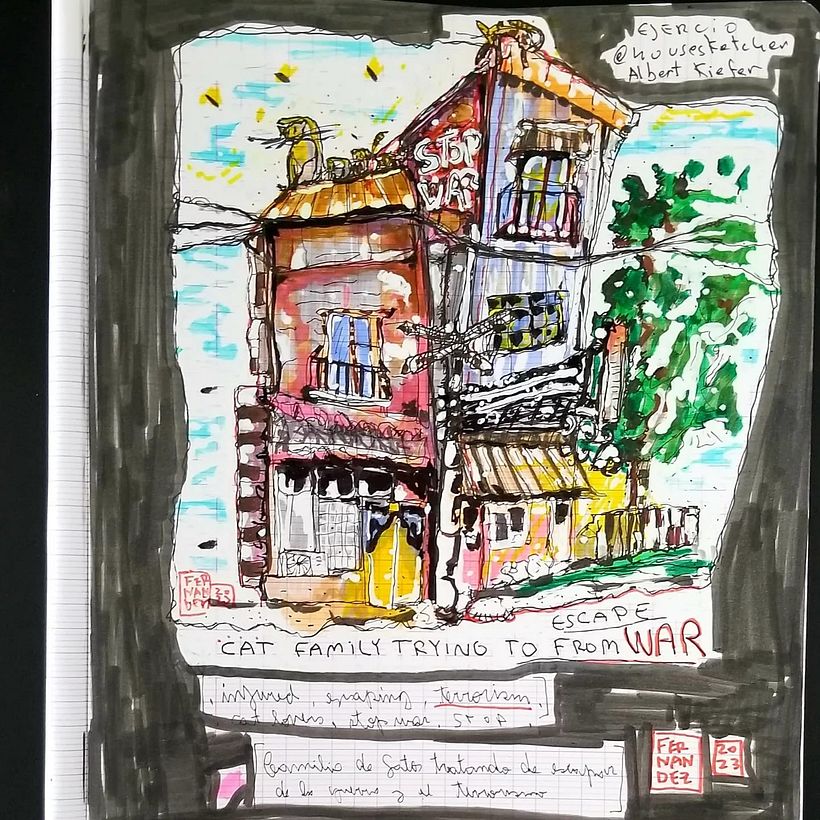 EJERCIO
@housesketcher
Albert Kiefer
STOP
WAR
FER
NAN
DEZ
23
ESCAPE
CAT FAMILY TRYING TO FROM WAR
injured, escaping, terrorism,
cat lovers, stop war, STOP
Familia de Gatos tratando de escapar
de la guerra y el terrorismo
FER
NAN
DEZ
20
23